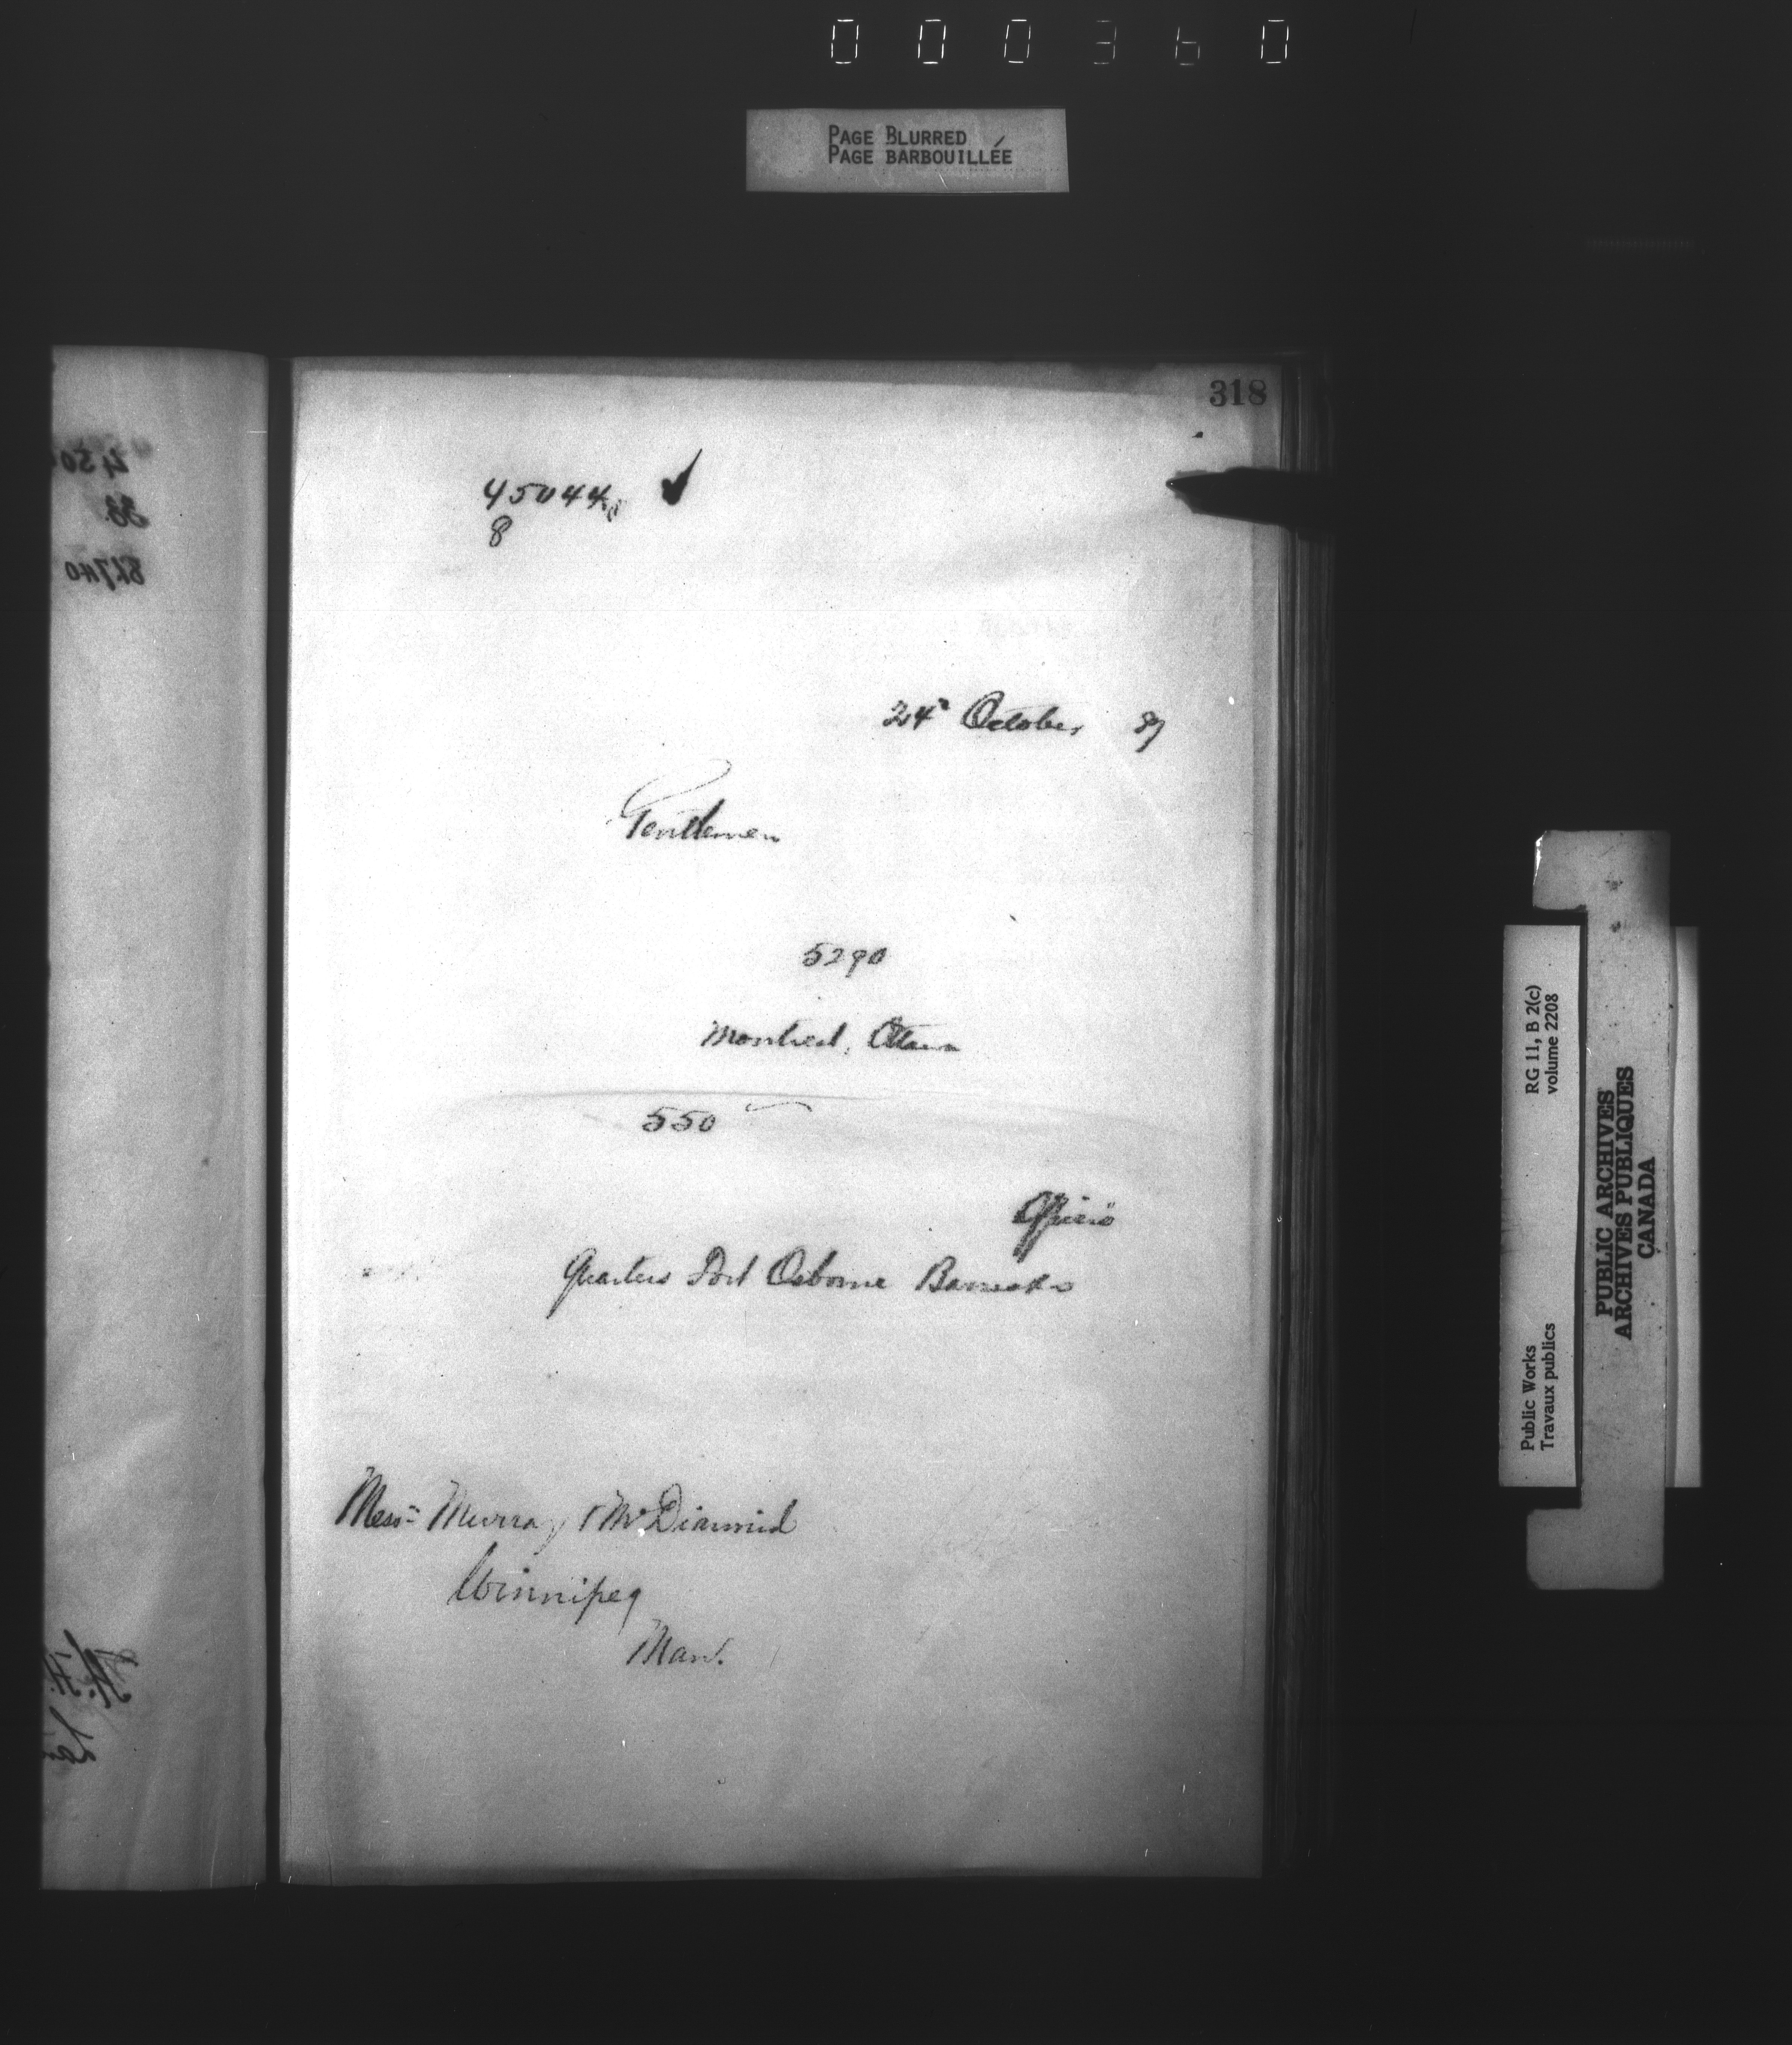 000360
PAGE BLURRED
PAGE BARBOUILLÉE
318
45044
8
24" October 87
Gentlemen
5290
Montreal, Ottawa
550
Officers
Quarters Fort Osborne Barracks
Messrs Murray & McDiarmid
Winnipeg
Man.
RG 11, B 2(c)
volume 2208
Public Works
Travaux publics
PUBLIC ARCHIVES
ARCHIVES PUBLIQUES
CANADA